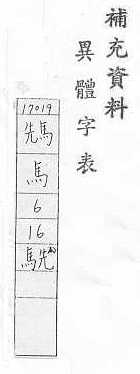 補充資料
異體字表
17019
先馬
馬
6
16
駪